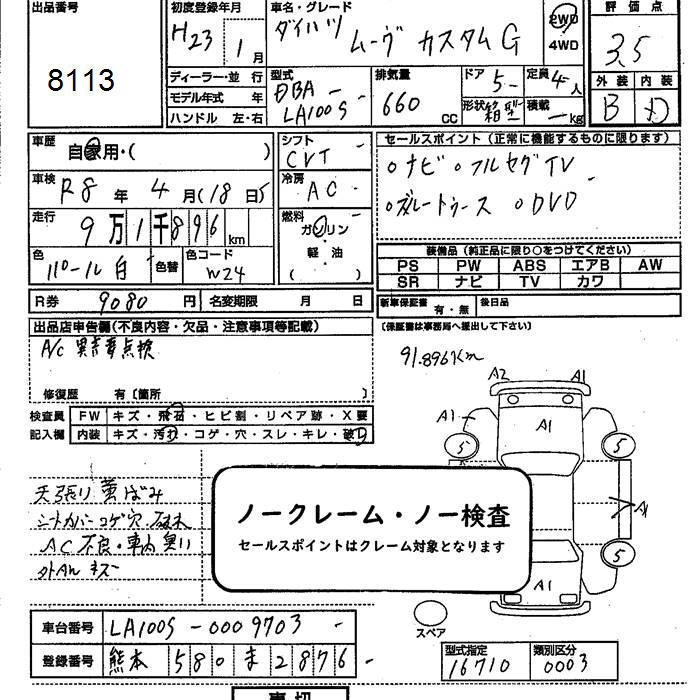 出品番号
8113
初度登録年月
H23 1月
車名・グレード
ダイハツ ムーヴ カスタム G
2WD
4WD
評価点
3.5
外装 内装
B D
ディーラー・並行
モデル年式 年
ハンドル 左・右
型式
DBA-
LA100S
排気量
660 cc
ドア 5
定員 4人
形状 箱型
積載 kg
車歴
自家用・( )
シフト
CVT
セールスポイント(正常に機能するものに限ります)
○ナビ ○フルセグTV
○ブルートゥース ○DVD
車検
R8年 4月(18日)
冷房
AC
走行
9万1千896km
燃料
ガソリン
軽油
( )
色
パール白
色替
色コード
W24
装備品(純正品に限り○をつけてください)
PS PW ABS エアB AW
SR ナビ TV カワ
R券 9080円
名変期限 月 日
新車保証書 有・無
後日品
(保証書は事務局へ提出して下さい)
出品店申告欄(不良内容・欠品・注意事項等記載)
A/C 異音要点検
修復歴 有〔箇所 〕
検査員
記入欄
FW キズ・飛石・ヒビ割・リペア跡・X要
内装 キズ・汚れ・コゲ・穴・スレ・キレ・破れ
91.896Km
A2 A1
A1 A1
5 5
A1
5
A1
天張り黄ばみ
シートカバーコゲ穴
AC不良・車内臭い
ノークレーム・ノー検査
セールスポイントはクレーム対象となります
スペア
車台番号 LA100S-0009703
登録番号 熊本 580 ま 2876
型式指定
16710
類別区分
0003
裏切